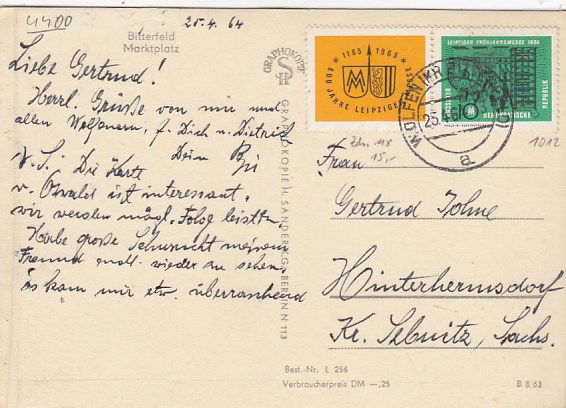 4400
25.4.64
Bitterfeld
Marktplatz
Liebe Gertrud!
Herzl. Grüße von mir und
allen Wolfenern, f. Dich u. Dietrich
Dein
N.S.: Die Karte
v. Oswald ist interessant,
wir werden mögl. Folge leisten.
Habe große Sehnsucht meinen
Freund endl. wieder zu sehen,
es kam mir etw. überraschend
GRAPHOKOPIE
SH
GRAPHOKOPIE H. SANDER K.G. BERLIN N 113
1165 1965
800 JAHRE LEIPZIGER MESSE
M
LEIPZIGER FRÜHJAHRSMESSE 1964
DEUTSCHE DEMOKRATISCHE REPUBLIK
WOLFEN (KR
25.4.64
a
Zdr. 118
15,-
1012
Frau
Gertrud Johne
Hinterhermsdorf
Kr. Sebnitz, Sachs.
Best.-Nr. L 256
Verbraucherpreis DM —,25
B 8/63